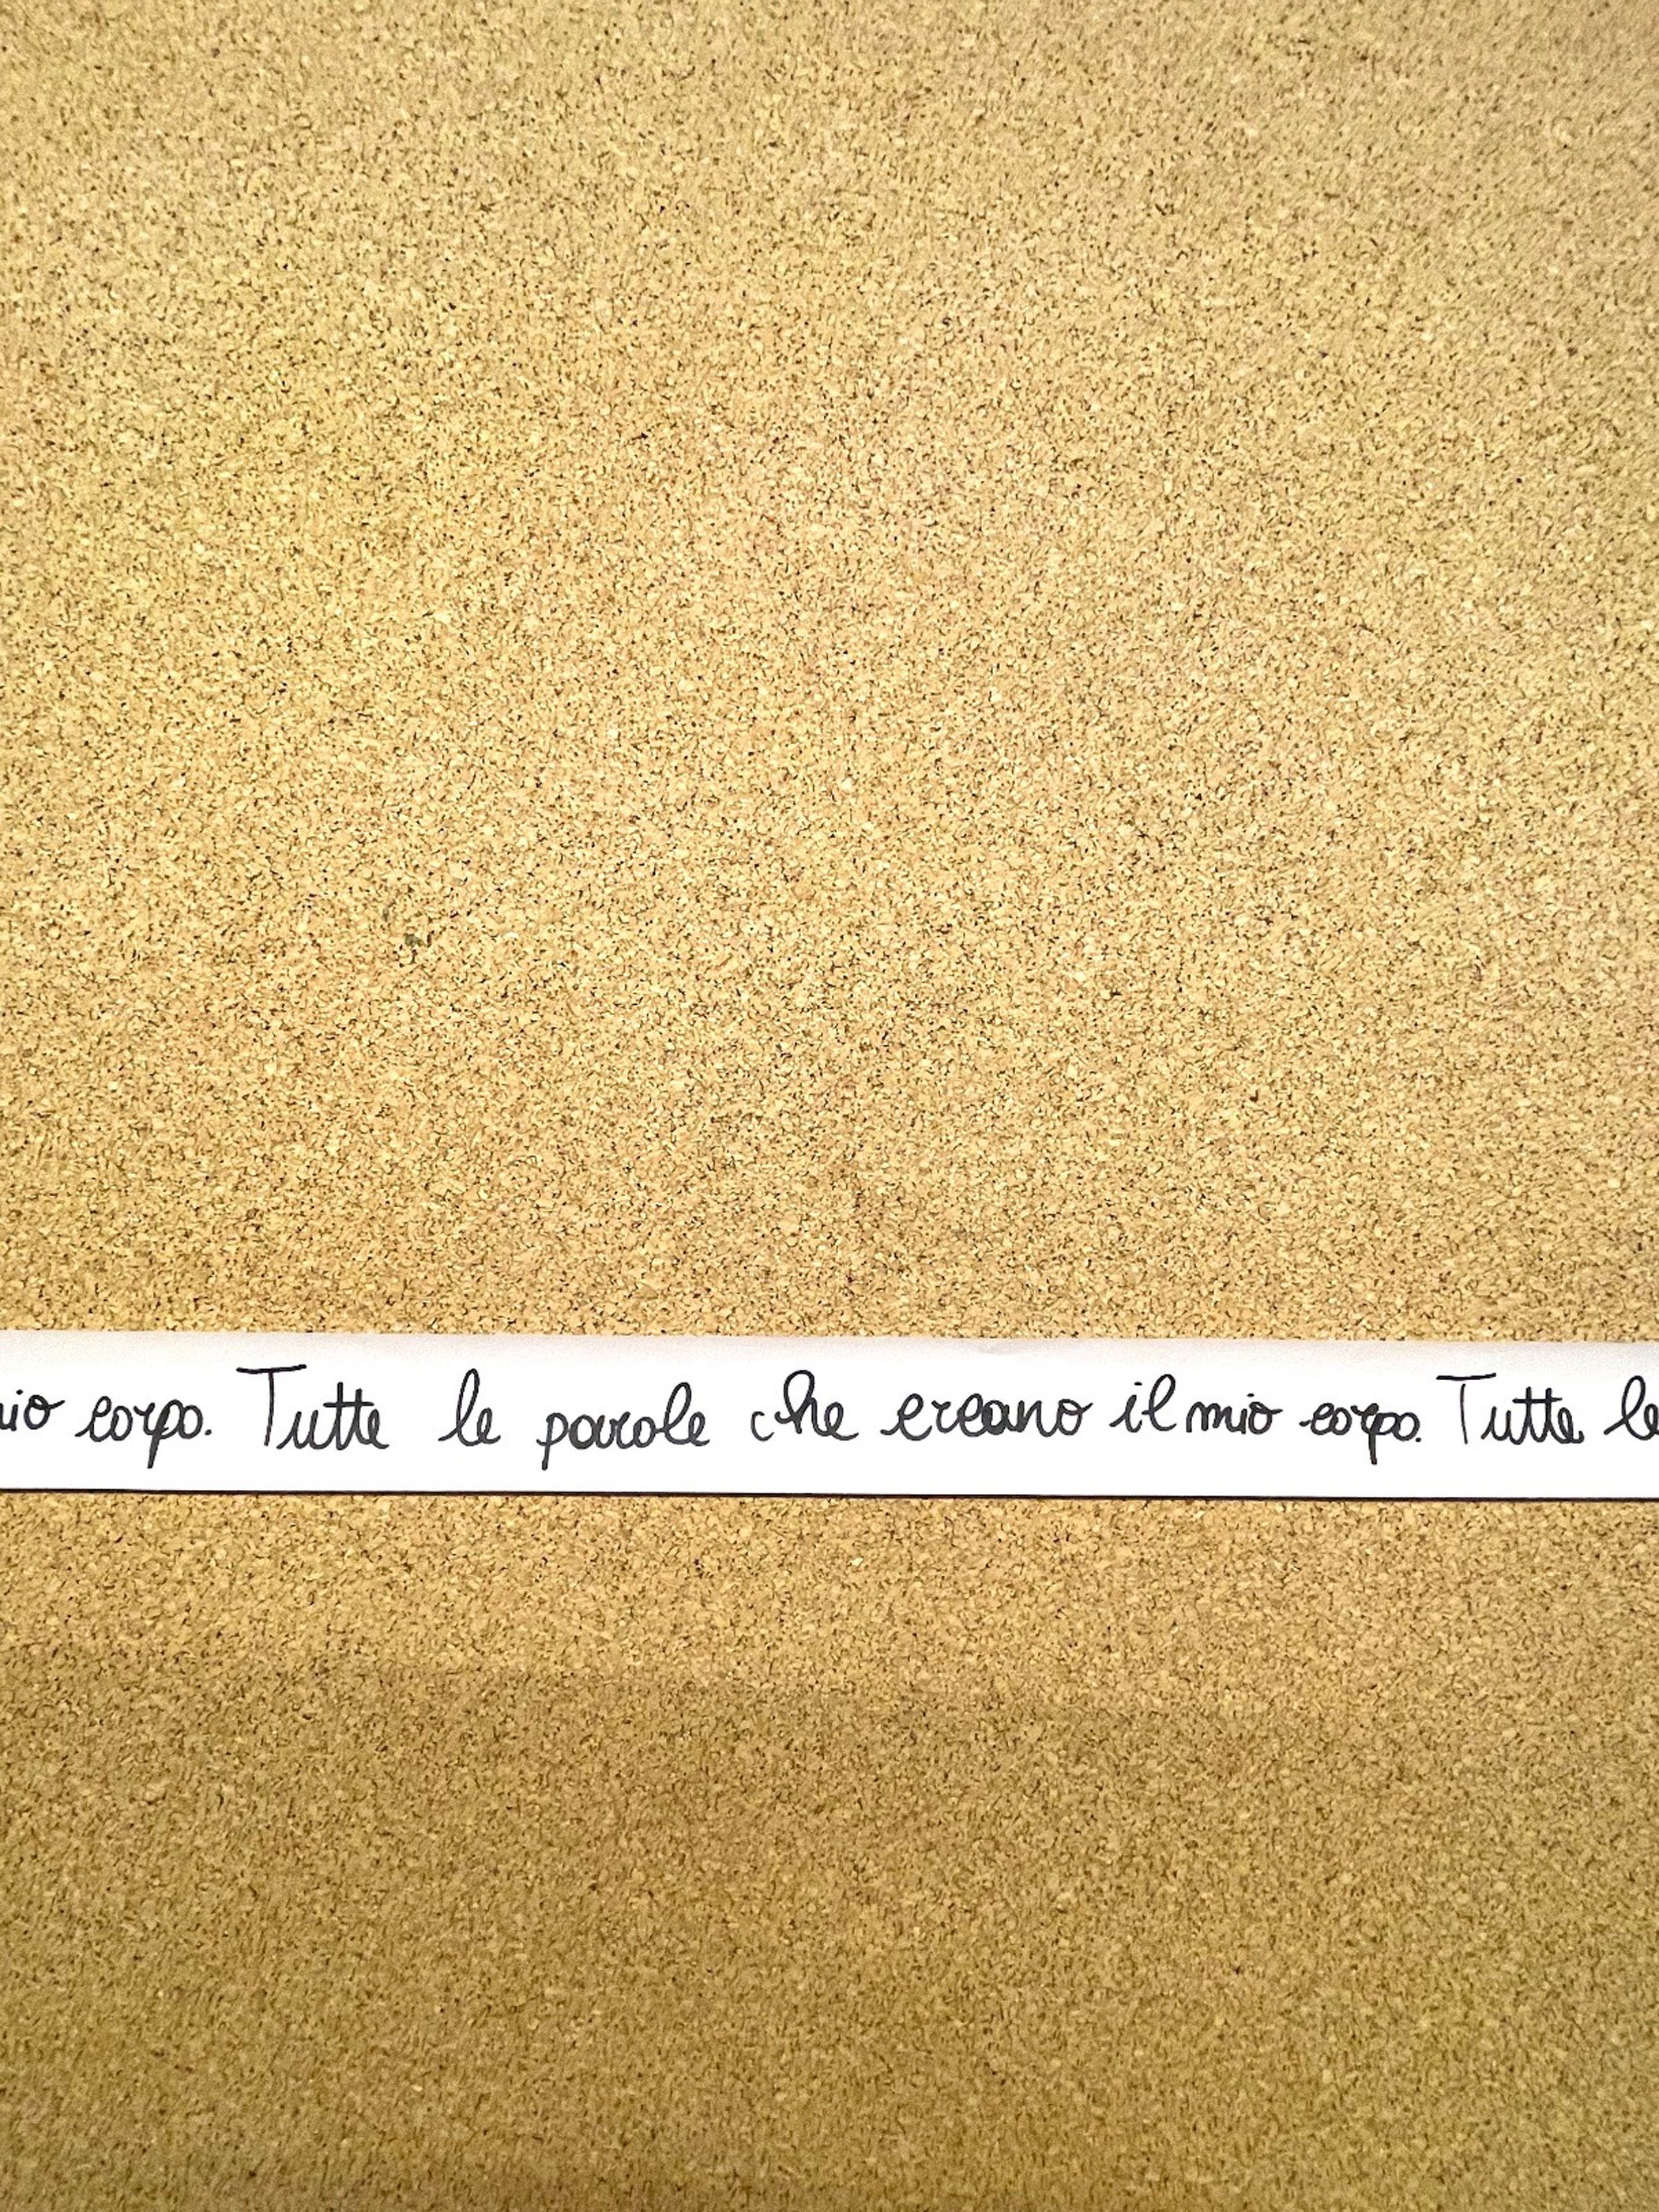 io corpo. Tutte le parole che creano il mio corpo. Tutte le